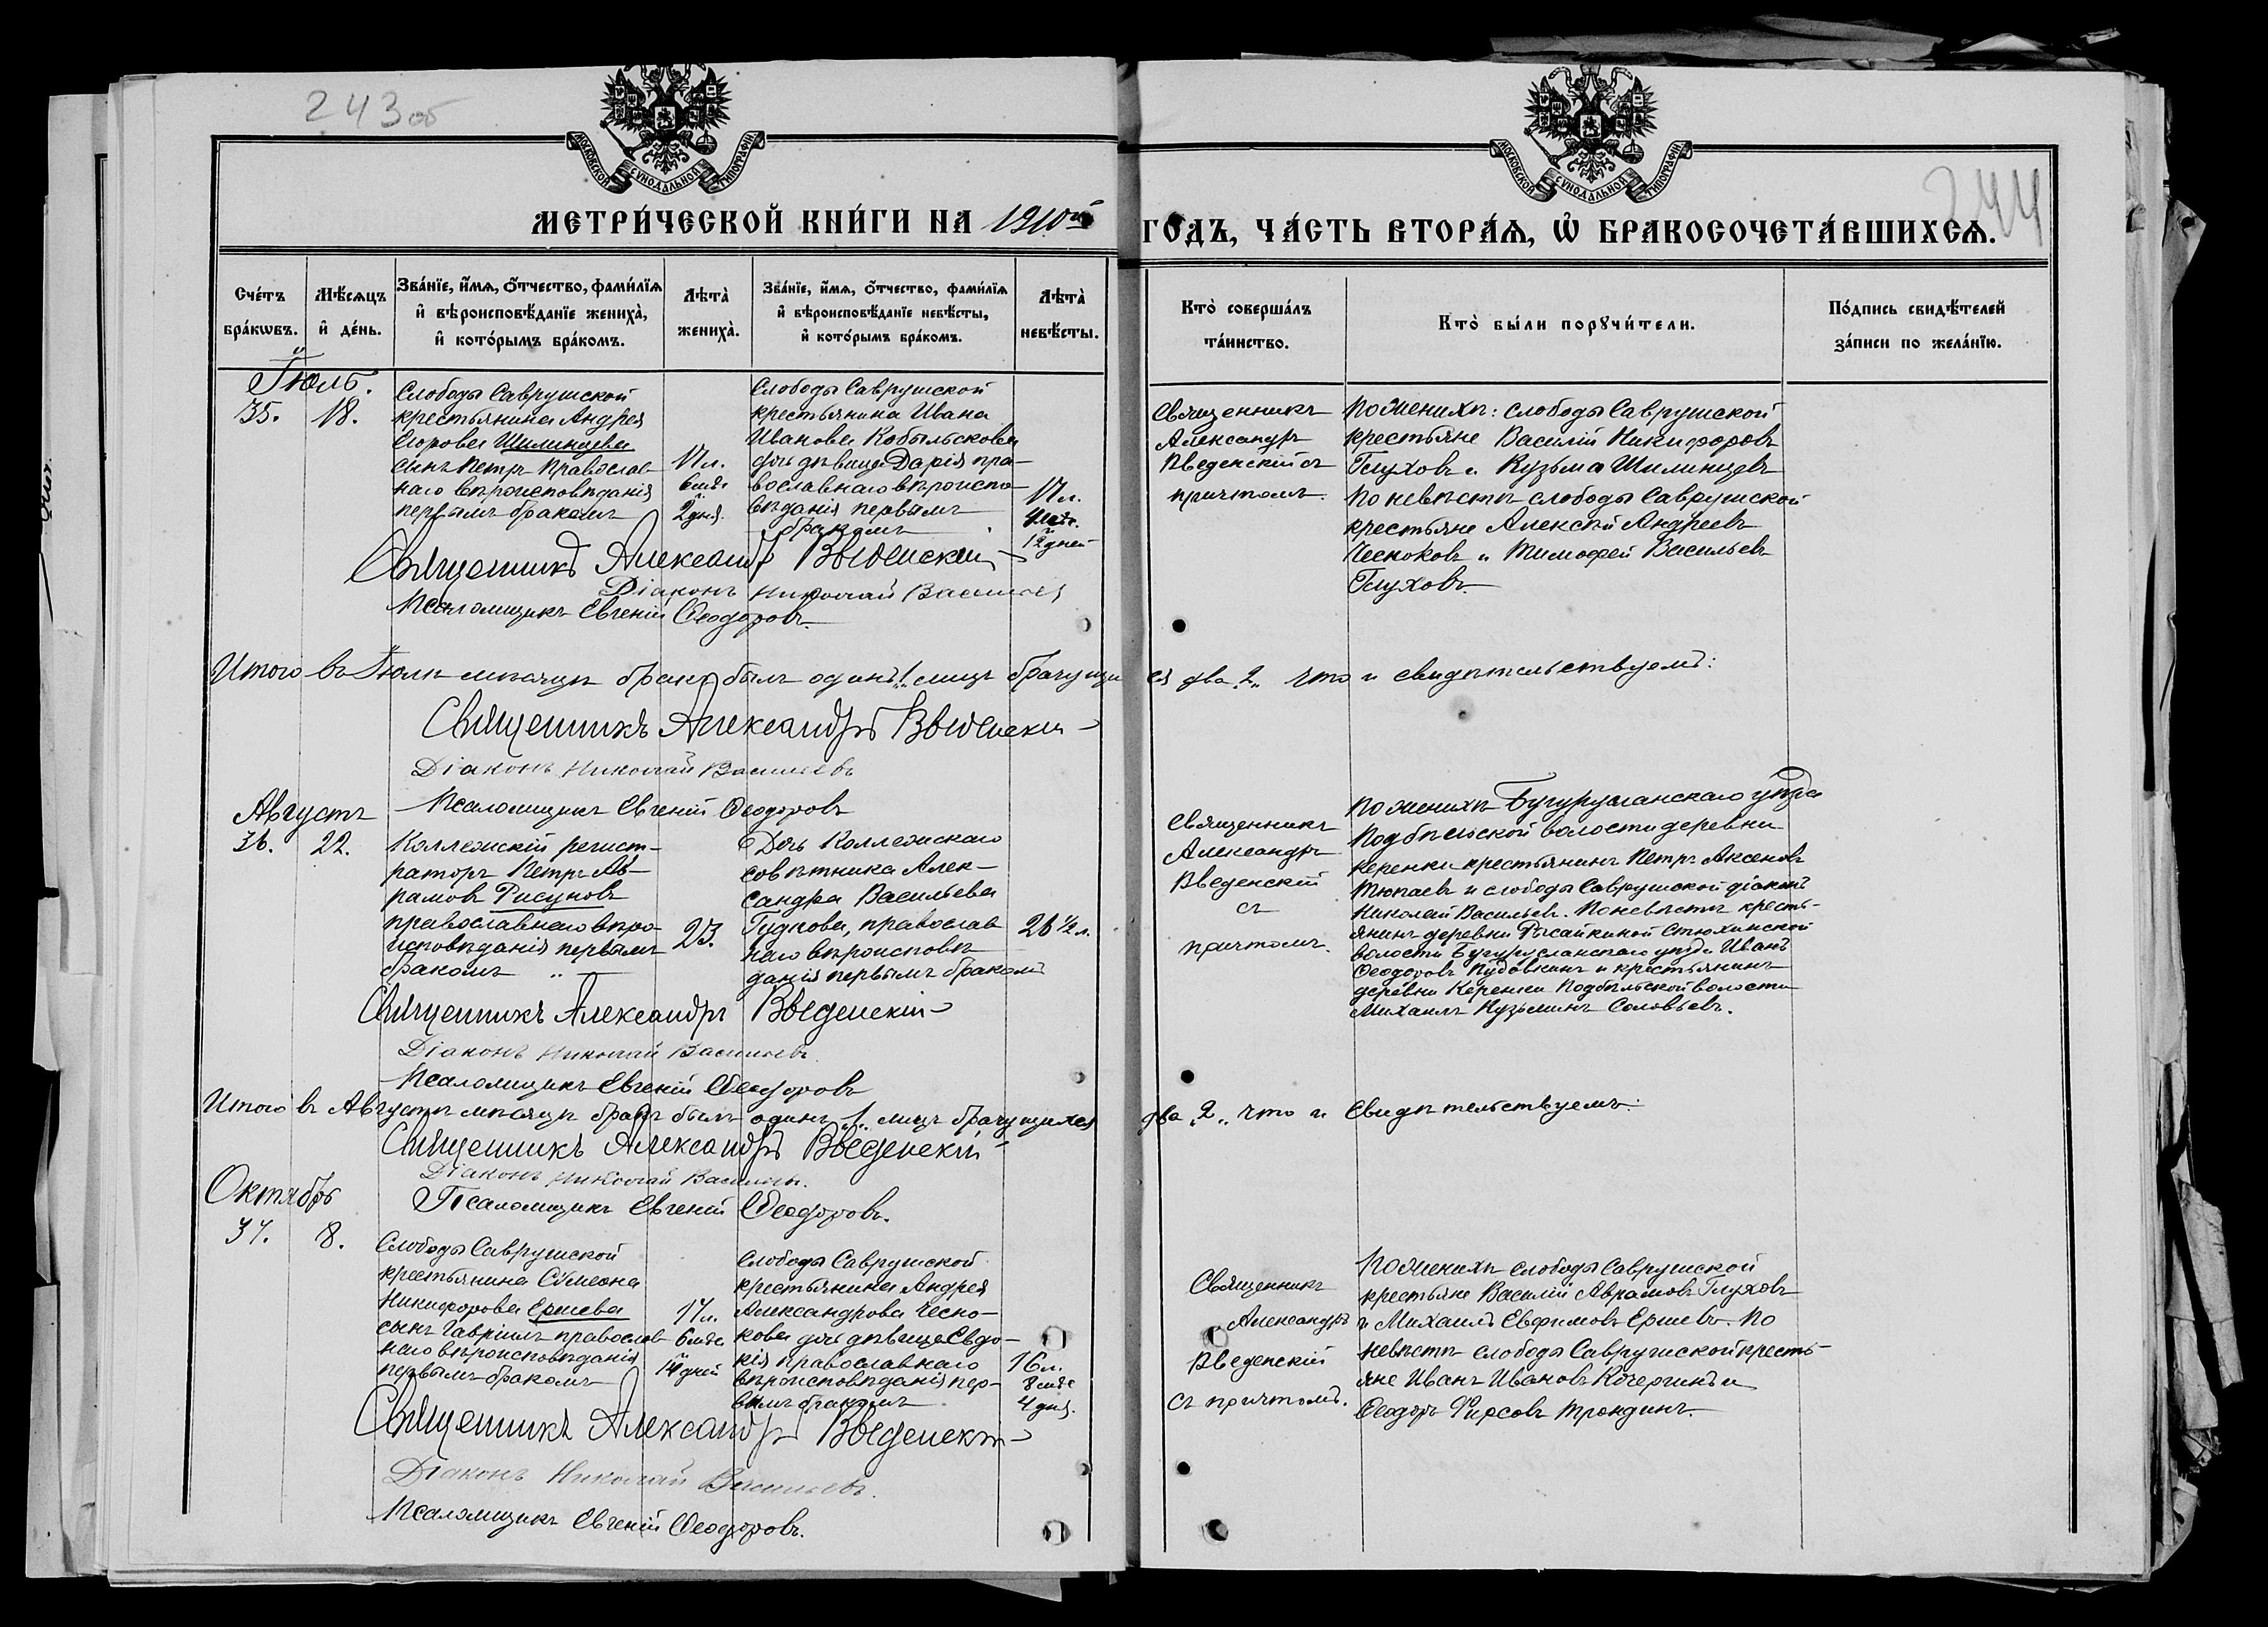 243 об
МОСКОВСКОЙ СѴНОДАЛЬНОЙ ТИПОГРАФІИ
МОСКОВСКОЙ СѴНОДАЛЬНОЙ ТИПОГРАФІИ
244
МЕТРИ́ЧЕСКОЙ КНИ́ГИ НА 1910й
ГОДЪ, ЧА́СТЬ ВТОРА́Ѧ, Ѡ҆ БРАКОСОЧЕТА́ВШИХСѦ.
Сче́тъ бра́кѡвъ.
Мѣ́сѧцъ и҆ де́нь.
Зва́нїе, и҆́мѧ, ѻ҆́тчество, фами́лїѧ
и҆ вѣроисповѣ́данїе жениха̀,
и҆ кото́рымъ бра́комъ.
Лѣта̀ жениха̀.
Зва́нїе, и҆́мѧ, ѻ҆́тчество, фами́лїѧ
и҆ вѣроисповѣ́данїе невѣ́сты,
и҆ кото́рымъ бра́комъ.
Лѣта̀ невѣ́сты.
Кто̀ соверша́лъ
та́инство.
Кто̀ бы́ли порꙋчи́тели.
По́дпись свидѣ́телей
за́писи по жела́нїю.
Іюль.
35.
18.
Слободы Саврушской
крестьянина Андрея
Егорова Шилинцева
сынъ Петръ православ
наго вѣроисповѣданія
первымъ бракомъ
17 л.
6 мѣс
2 дня.
Слободы Саврушской
крестьянина Ивана
Иванова Кобыльскова
дочь дѣвица Дарія пра-
вославнаго вѣроиспо-
вѣданія первымъ
бракомъ
17 л.
4 мѣс.
12 дней
Священникъ
Александръ
Введенскій съ
причтомъ.
По женихѣ: слободы Саврушской
крестьяне Василій Никифоровъ
Глуховъ и Кузьма Шилинцевъ
По невѣстѣ слободы Саврушской
крестьяне Алексѣй Андреевъ
Чесноковъ и Тимофей Васильевъ
Глуховъ.
Священникъ Александръ Введенскій
Діаконъ Николай Васильевъ
Псаломщикъ Евгеній Ѳеодоровъ.
Итого въ Іюлѣ мѣсяцѣ бракъ былъ одинъ „1„ лицъ брачущи ся два „2„ что и свидѣтельствуемъ:
Священникъ Александръ Введенскій
Діаконъ Николай Васильевъ
Псаломщикъ Евгеній Ѳеодоровъ
Августъ
36.
22.
Коллежскій регист-
раторъ Петръ Ав-
рамовъ Рисуновъ
православнаго вѣро-
исповѣданія первымъ
бракомъ
23.
Дочь Коллежскаго
совѣтника Алек-
сандра Васильева
Гудкова, православ
наго вѣроисповѣ
данія первымъ бракомъ
26 ½ л.
Священникъ
Александръ
Введенскій
съ
причтомъ.
По женихѣ Бугурусланскаго уѣзда
Подбѣльской волости деревни
Керенки крестьянинъ Петръ Аксеновъ
Тюпаевъ и слободы Саврушской діаконъ
Николай Васильевъ. По невѣстѣ кресть-
янинъ деревни Рысайкиной Стюхинской
волости Бугурусланскаго уѣзда Иванъ
Ѳеодоровъ Пудовкинъ и крестьянинъ
деревни Керенки Подбѣльской волости
Михаилъ Кузьминъ Соловьевъ.
Священникъ Александръ Введенскій
Діаконъ Николай Васильевъ.
Псаломщикъ Евгеній Ѳеодоровъ
Итого въ Августѣ мѣсяцѣ бракъ былъ одинъ „1„ лицъ брачущихся два „2„ что и свидѣтельствуемъ:
Священникъ Александръ Введенскій
Діаконъ Николай Васильевъ.
Псаломщикъ Евгеній Ѳеодоровъ.
Октябрь
37.
8.
Слободы Саврушской
крестьянина Сѵмеона
Никифорова Ершева
сынъ Гавріилъ православ
наго вѣроисповѣданія
первымъ бракомъ
17 л.
6 мѣс
14 дней
Слободы Саврушской
крестьянина Андрея
Александрова Чесно-
кова дочь дѣвица Евдо-
кія православнаго
вѣроисповѣданія пер-
вымъ бракомъ
16 л.
8 мѣс
4 дня.
Священникъ
Александръ
Введенскій
съ причтомъ.
По женихѣ слободы Саврушской
крестьяне Василій Аврамовъ Глуховъ
и Михаилъ Евфимовъ Ершевъ. По
невѣстѣ слободы Саврушской кресть-
яне Иванъ Ивановъ Кочергинъ и
Ѳеодоръ Фирсовъ Трондинъ.
Священникъ Александръ Введенскій
Діаконъ Николай Васильевъ.
Псаломщикъ Евгеній Ѳеодоровъ.